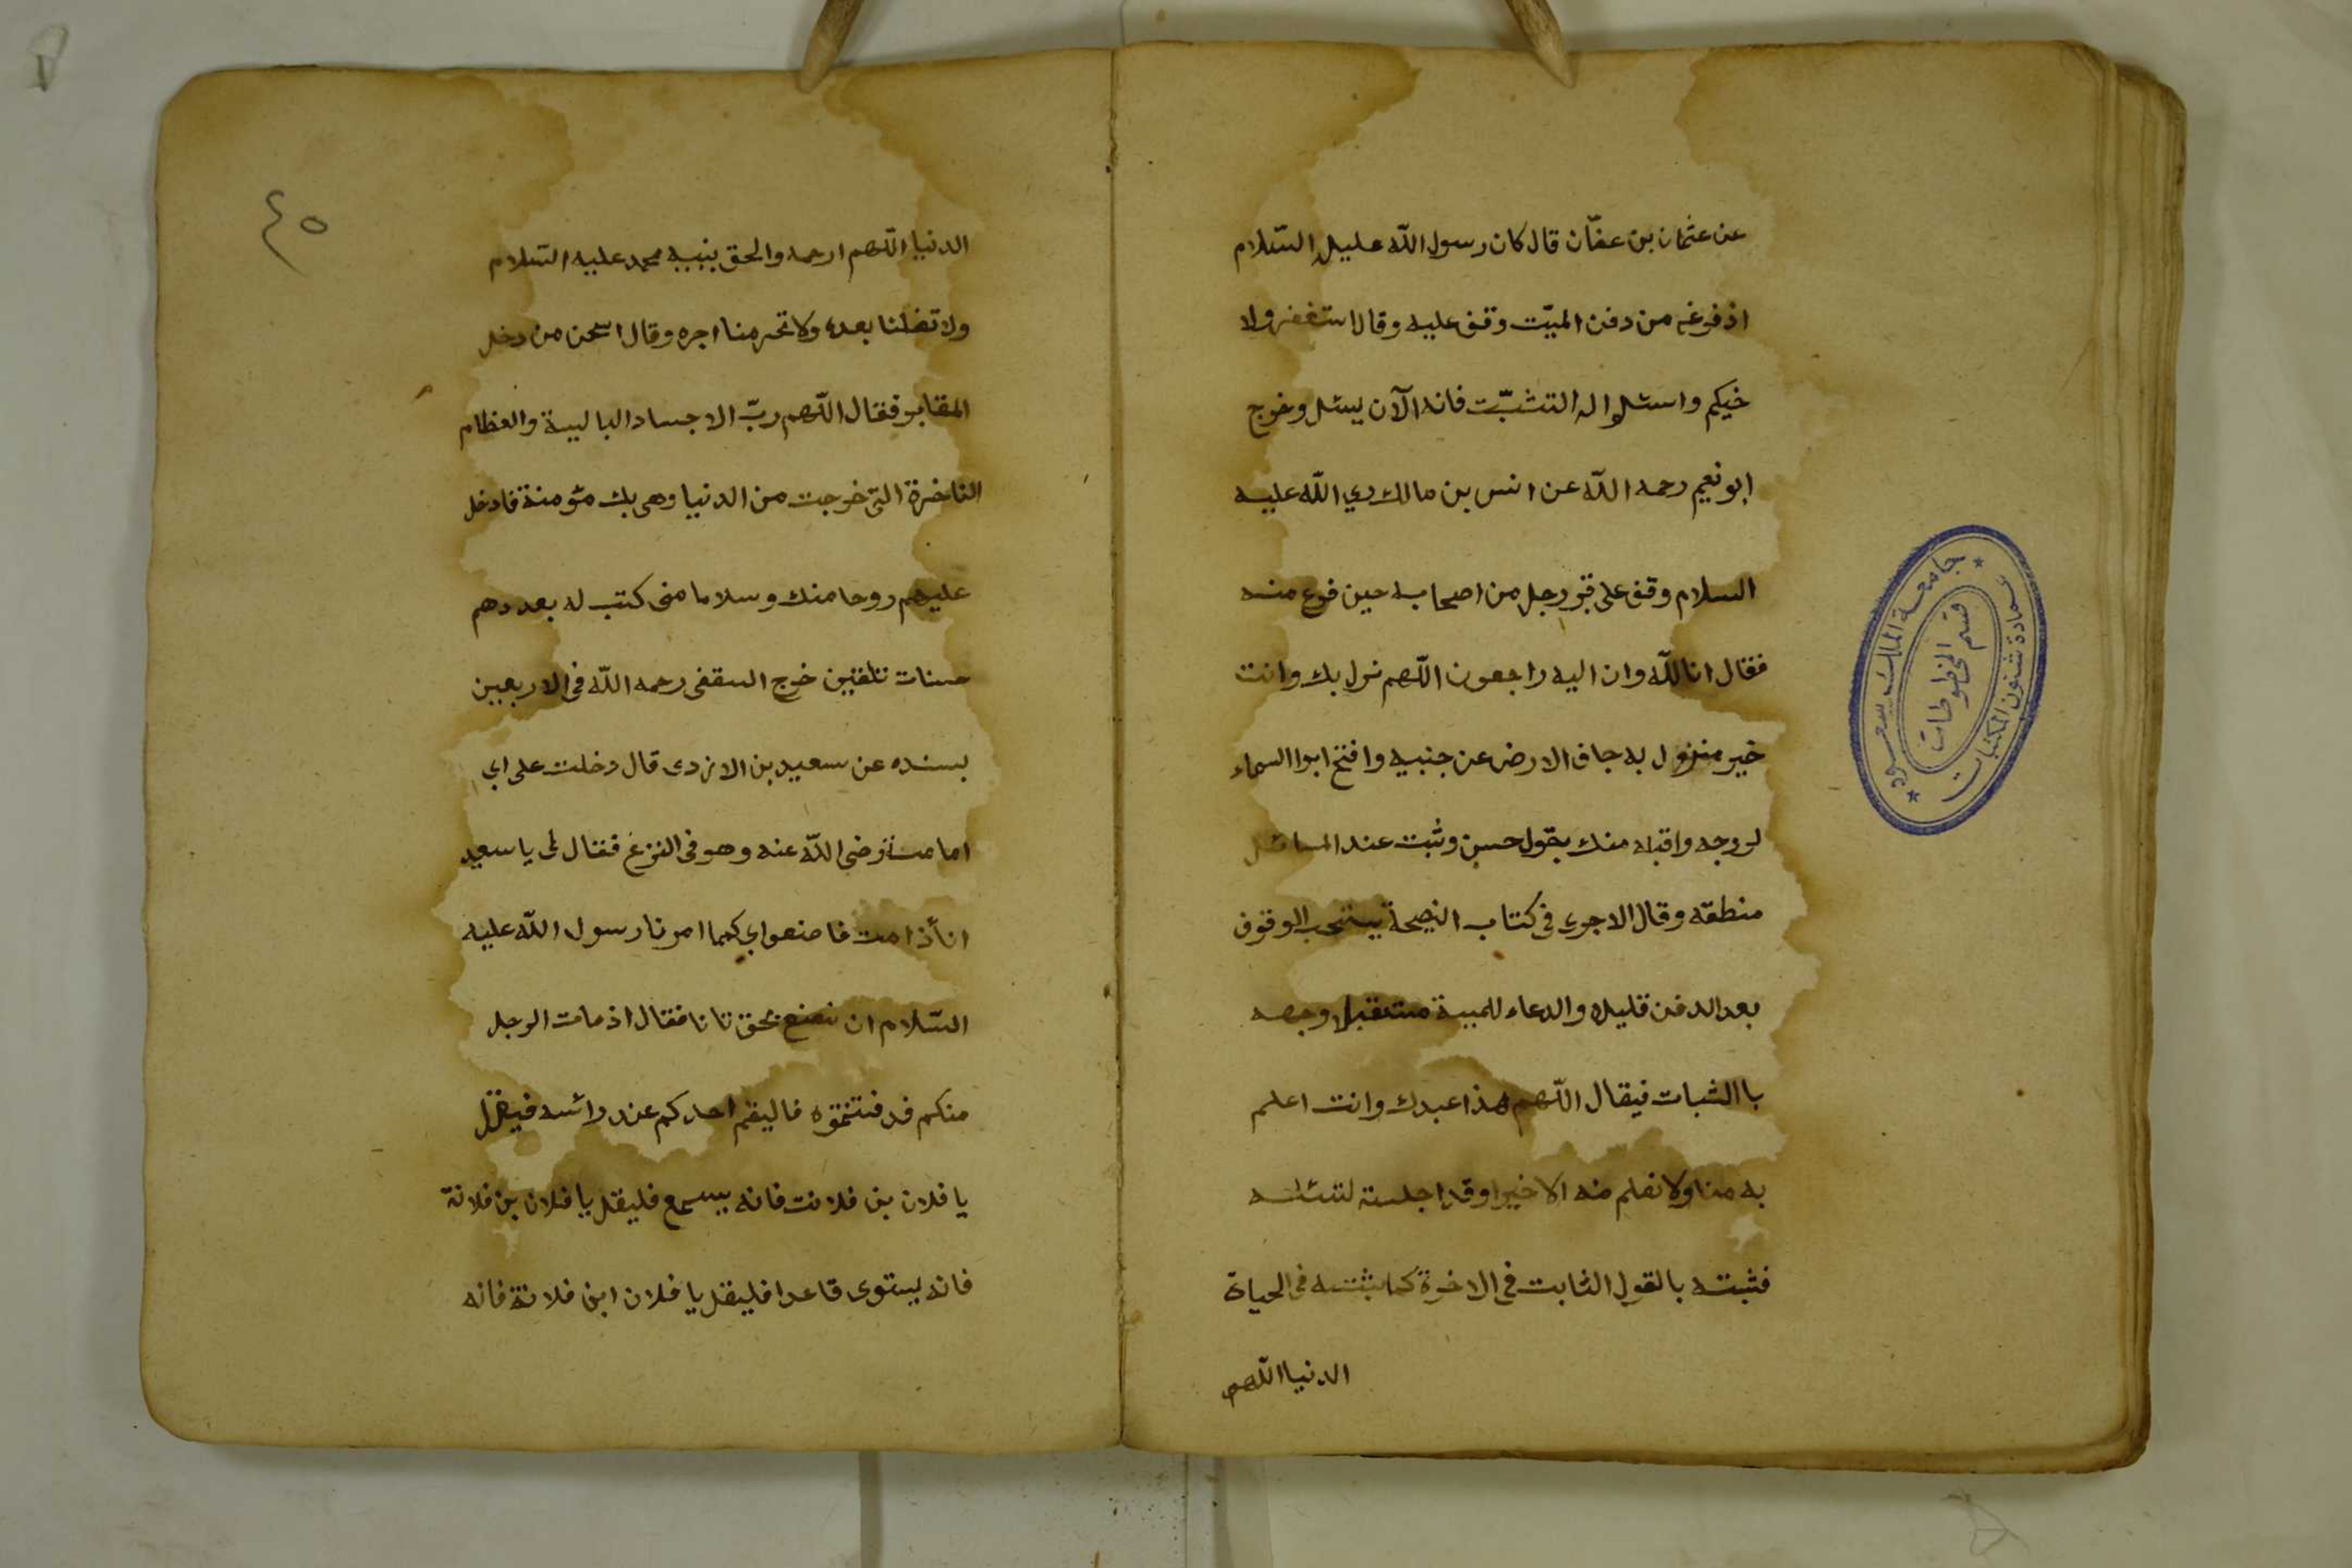 عن عثمان بن عفّان قال كان رسول اللّه عليه السّلام
اذ فوغه من دفن الميّت وقف عليه وقال استغفرولا
خيكم واسئلوا له التثبّت فانه الآن يسئل وخرج
ابو نعيم رحمه اللّه عن انس بن مالك رضي اللّه عليه
السلام وقف على قبر رجل من اصحابه حين فرغ منه
فقال انا للّه وان اليه راجعون اللّهم نزل بك وانت
خير منزول به جاف الارض عن جنبيه وافتح ابوا السماء
لروجه واقبله منك بقول حسن وثبت عند المسائل
منطقه وقال الاجرى فى كتاب النصيحة يستحب الوقوف
بعد الدفن قليلا والدعاء للميية مستقبل وجهه
باالثبات فيقال اللّهم هذا عبدك وانت اعلم
به منا ولا نعلم منه الا خيرا وقد اجلسته لتسئله
فثبته بالقول الثابت فى الاخرة كما ثبته فى الحياة
الدنيا اللّهم
جامعة الملك سعود
عمادة شئون المكتبات
قسم المخطوطات
٤٥
الدنيا اللّهم ارحمه والحق بنبيه محمد عليه السّلام
ولا تضلنا بعده ولا تحرمنا اجره وقال اسحن من دخل
المقابر فقال اللّهم ربّ الاجساد البالية والعظام
الناخرة التى خرجت من الدنيا وهى بك مؤمنة فادخل
عليهم روحا منك وسلاما منى كتب له بعددهم
حسنات تلقين خرج السقفى رحمه اللّه فى الاربعين
بسنده عن سعيد بن الازدى قال دخلت على ابي
امامة رضى اللّه عنه وهو فى النزع فقال لى يا سعيد
انا أذا مت فاصنعوا بي كما امرنا رسول اللّه عليه
السّلام ان نصنع بحق تانا فقال اذ مات الرجل
منكم فد فنتقوه فاليقم احدكم عند رائسه فيقل
يا فلان بن فلانت فانه يسمع فليقل يا فلان بن فلانة
فانه يستوى قاعدا فليقل يا فلان ابن فلانة فانه